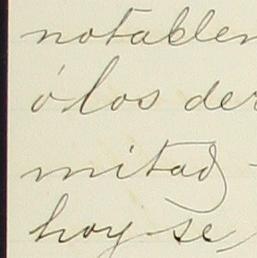 notablem
ó los der
mitad -
hoy se,